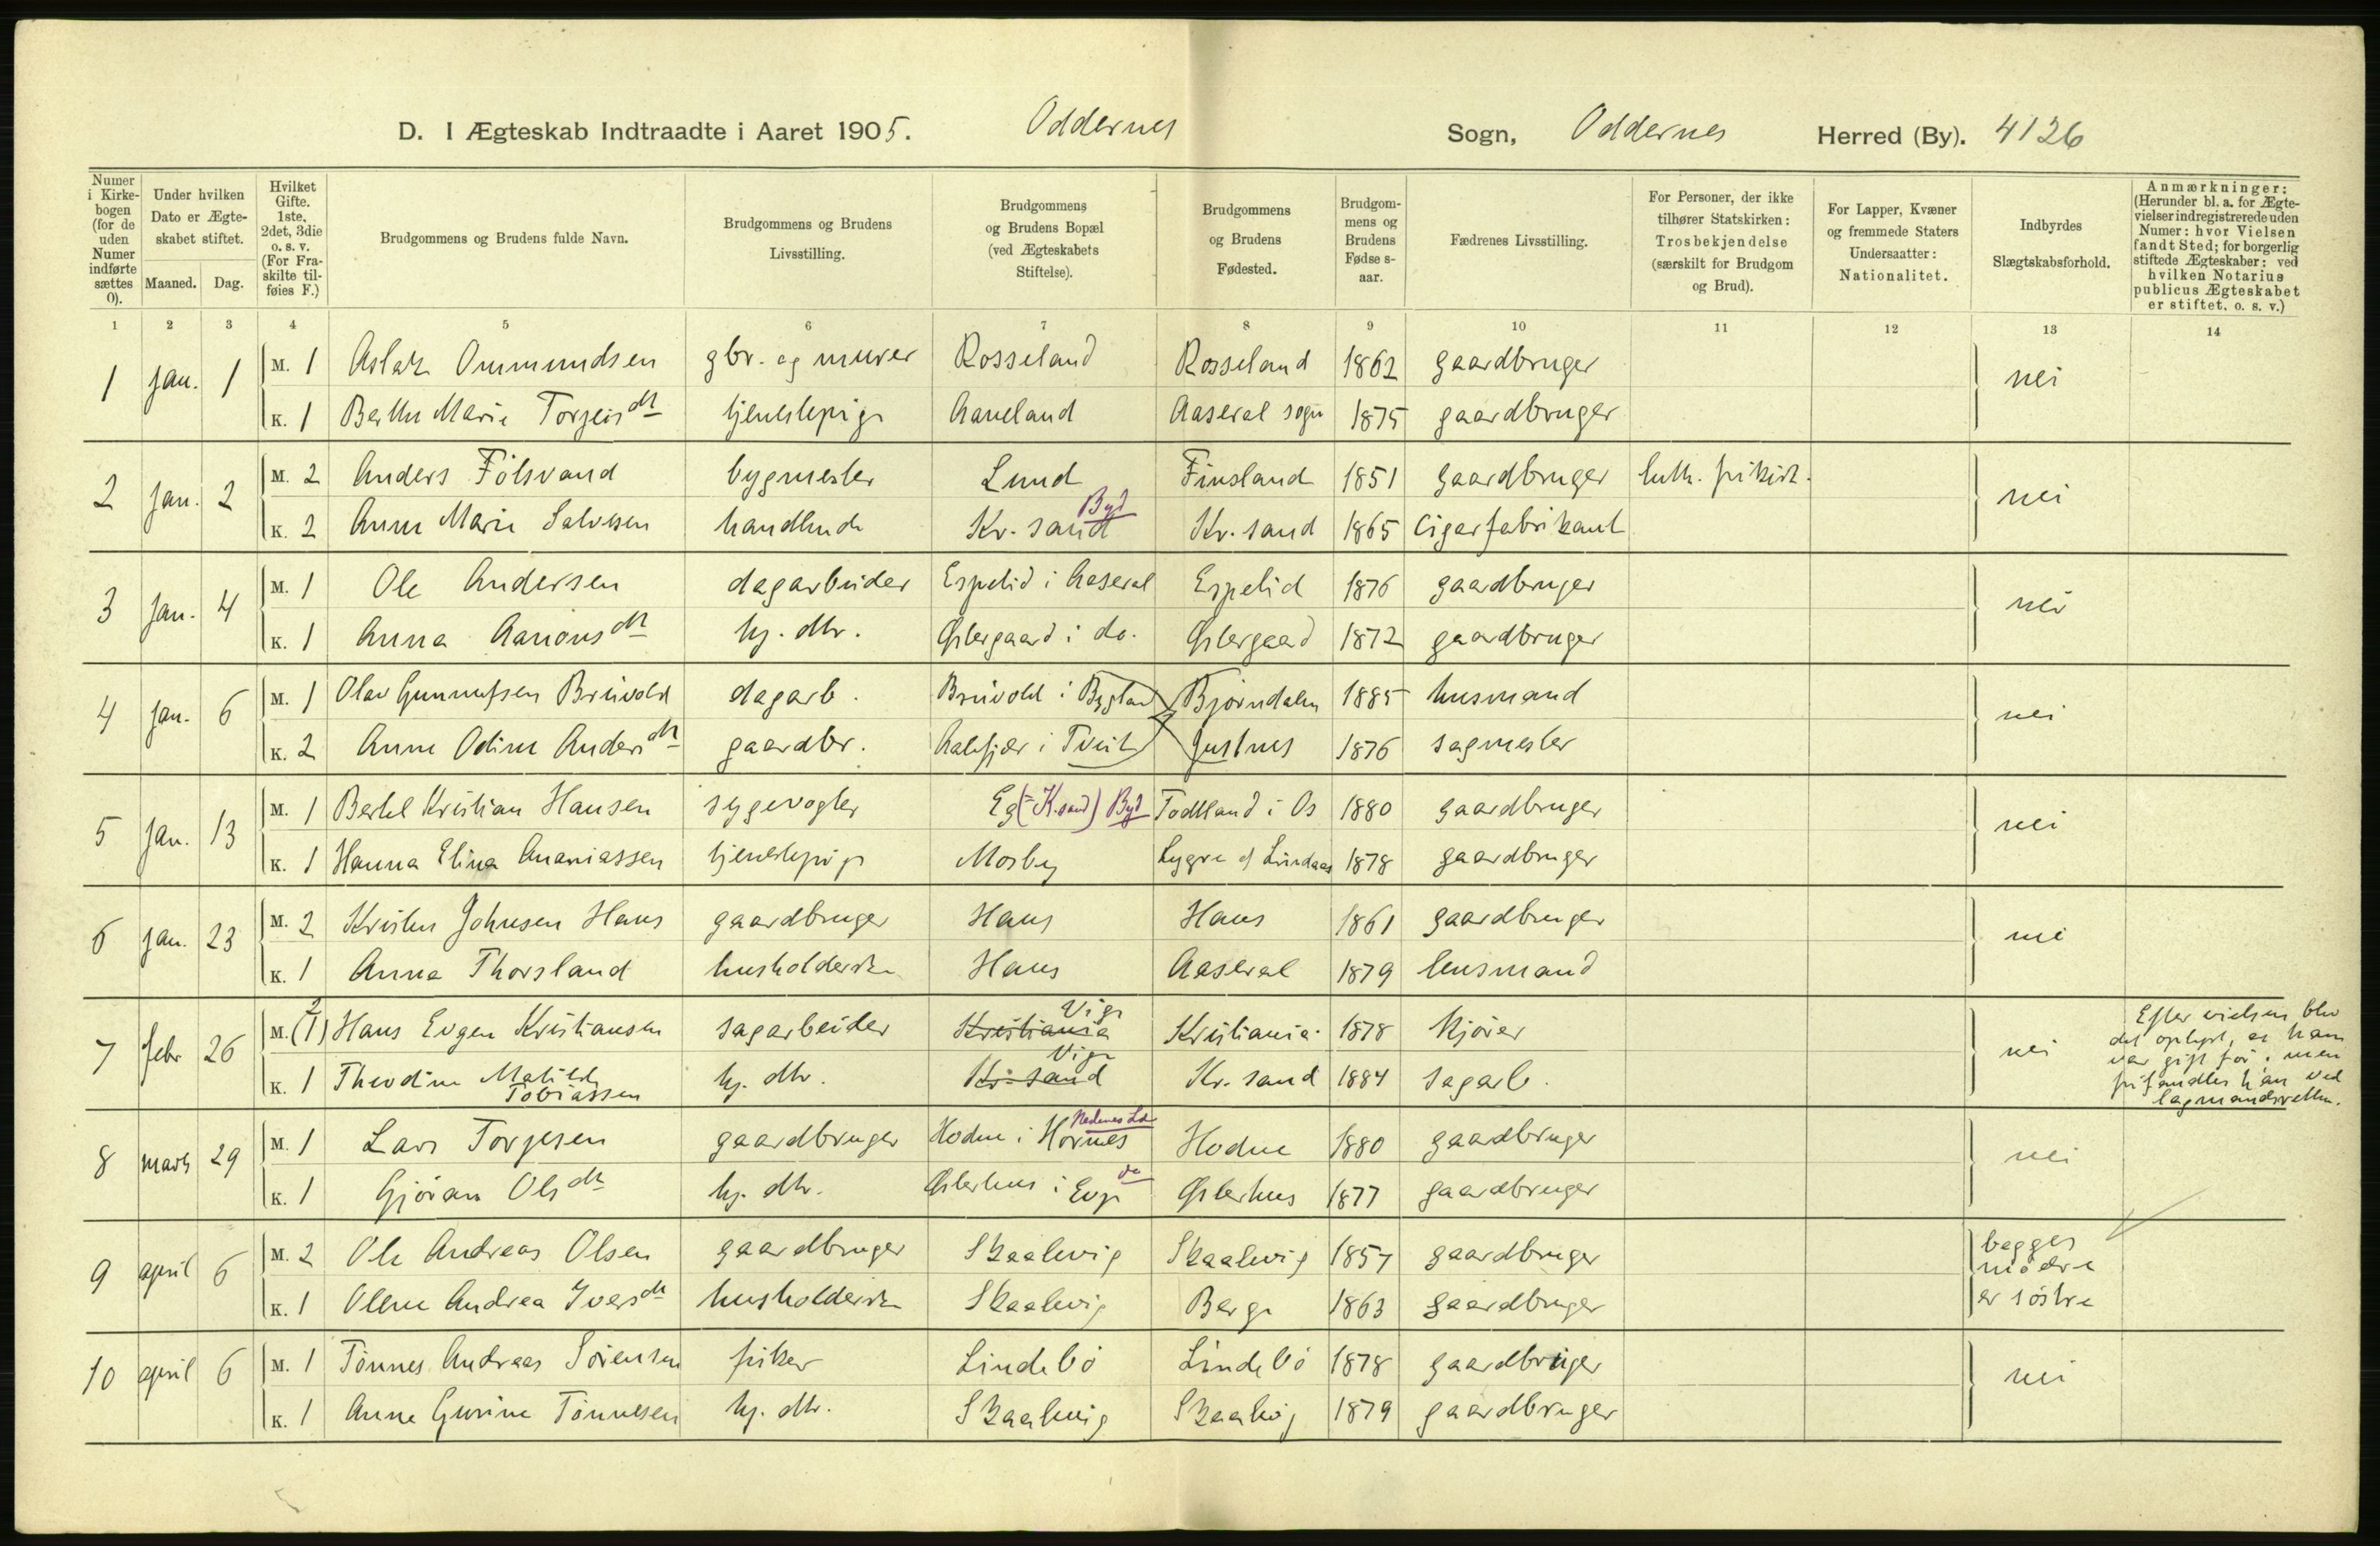 D. I Ægteskab Indtraadte i Aaret 1905. Oddernes Sogn, Oddernes Herred (By). 4126
Numer i Kirkebogen (for de uden Numer indførte sættes 0).
Under hvilken Dato er Ægteskabet stiftet.
Maaned. Dag.
Hvilket Gifte. 1ste, 2det, 3die o. s. v. (For Fraskilte tilføies F.)
Brudgommens og Brudens fulde Navn.
Brudgommens og Brudens Livsstilling.
Brudgommens og Brudens Bopæl (ved Ægteskabets Stiftelse).
Brudgommens og Brudens Fødested.
Brudgommens og Brudens Fødselsaar.
Fædrenes Livsstilling.
For Personer, der ikke tilhører Statskirken: Trosbekjendelse (særskilt for Brudgom og Brud).
For Lapper, Kvæner og fremmede Staters Undersaatter: Nationalitet.
Indbyrdes Slægtskabsforhold.
Anmærkninger: (Herunder bl. a. for Ægtevielser indregistrerede uden Numer: hvor Vielsen fandt Sted; for borgerlig stiftede Ægteskaber: ved hvilken Notarius publicus Ægteskabet er stiftet, o. s. v.)
1 2 3 4 5 6 7 8 9 10 11 12 13 14
1 jan. 1 M. 1 Aslak Ommundsen gbr. og murer Rosseland Rosseland 1862 gaardbruger nei
K. 1 Berthe Marie Torgeisdtr tjenestepige Aaneland Aaseral sogn 1875 gaardbruger
2 jan. 2 M. 2 Anders Fölsvand bygmester Lund Finsland 1851 gaardbruger luth. frikirk. nei
K. 2 Anne Marie Salvesen handlende Kr. sand Byd Kr. sand 1865 Cigarfabrikant
3 jan. 4 M. 1 Ole Andersen dagarbeider Espelid i Aaseral Espelid 1876 gaardbruger nei
K. 1 Anna Aanonsdtr hj. dtr. Østergaard i do. Østergaard 1872 gaardbruger
4 jan. 6 M. 1 Olav Gunnufsen Breivold dagarb. Breivold i Bygland Bjorndalen 1885 husmand nei
K. 2 Anne Odine Andersdtr gaardbr. Aalefjær i Tveit Justnes 1876 sagmester
5 jan. 13 M. 1 Bertel Kristian Hansen sygevogter Eg (= K.sand) Byd Todtland i Os 1880 gaardbruger nei
K. 1 Hanna Elina Ananiassen tjenestepige Mosby Lygre i Lindaas 1878 gaardbruger
6 jan. 23 M. 2 Kristen Johnsen Haus gaardbruger Haus Haus 1861 gaardbruger nei
K. 1 Anna Thorsland husholderske Haus Aaseral 1879 lensmand
7 febr 26 M. (1) 2 Hans Evgen Kristiansen sagarbeider Kristiania Vige Kristiania. 1878 kjører nei
K. 1 Theodine Matilde Tobiassen hj. dtr. Kr. sand Vige Kr. sand 1884 sagarb.
Efter vielsen blev
det oplyst, at han
var gift før, men
frifandtes han ved
lagmandsretten.
8 marts 29 M. 1 Lars Torjesen gaardbruger Hodne i Hornes Nedenes Hodne 1880 gaardbruger nei
K. 1 Gjøran Olsdtr hj. dtr. Østerhus i Evje do Østerhus 1877 gaardbruger
9 april 6 M. 2 Ole Andreas Olsen gaardbruger Skaalevig Skaalevig 1857 gaardbruger begges
mødre
K. 1 Olene Andrea Iversdtr husholderske Skaalevig Berge 1863 gaardbruger er søstre
10 april 6 M. 1 Tönnes Andreas Sörensen fisker Lindebö Lindebö 1878 gaardbruger nei
K. 1 Anne Gurine Tönnesen hj. dtr. Skaalevig Skaalevig 1879 gaardbruger